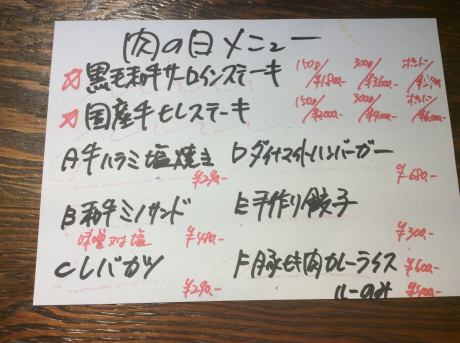 肉の日メニュー
☆黒毛和牛サーロインステーキ 150g/¥1,800- 300g/¥3,600-
☆国産牛ヒレステーキ 150g/¥2,000- 300g/
A牛ハラミ塩焼き ¥290-
Dダイナマイトハンバーガー ¥680-
B和牛ミノサンド
味噌又は塩 ¥480-
E手作り餃子 ¥300-
Cレバカツ ¥290-
F豚もも肉カレーライス ¥600-
ルーのみ